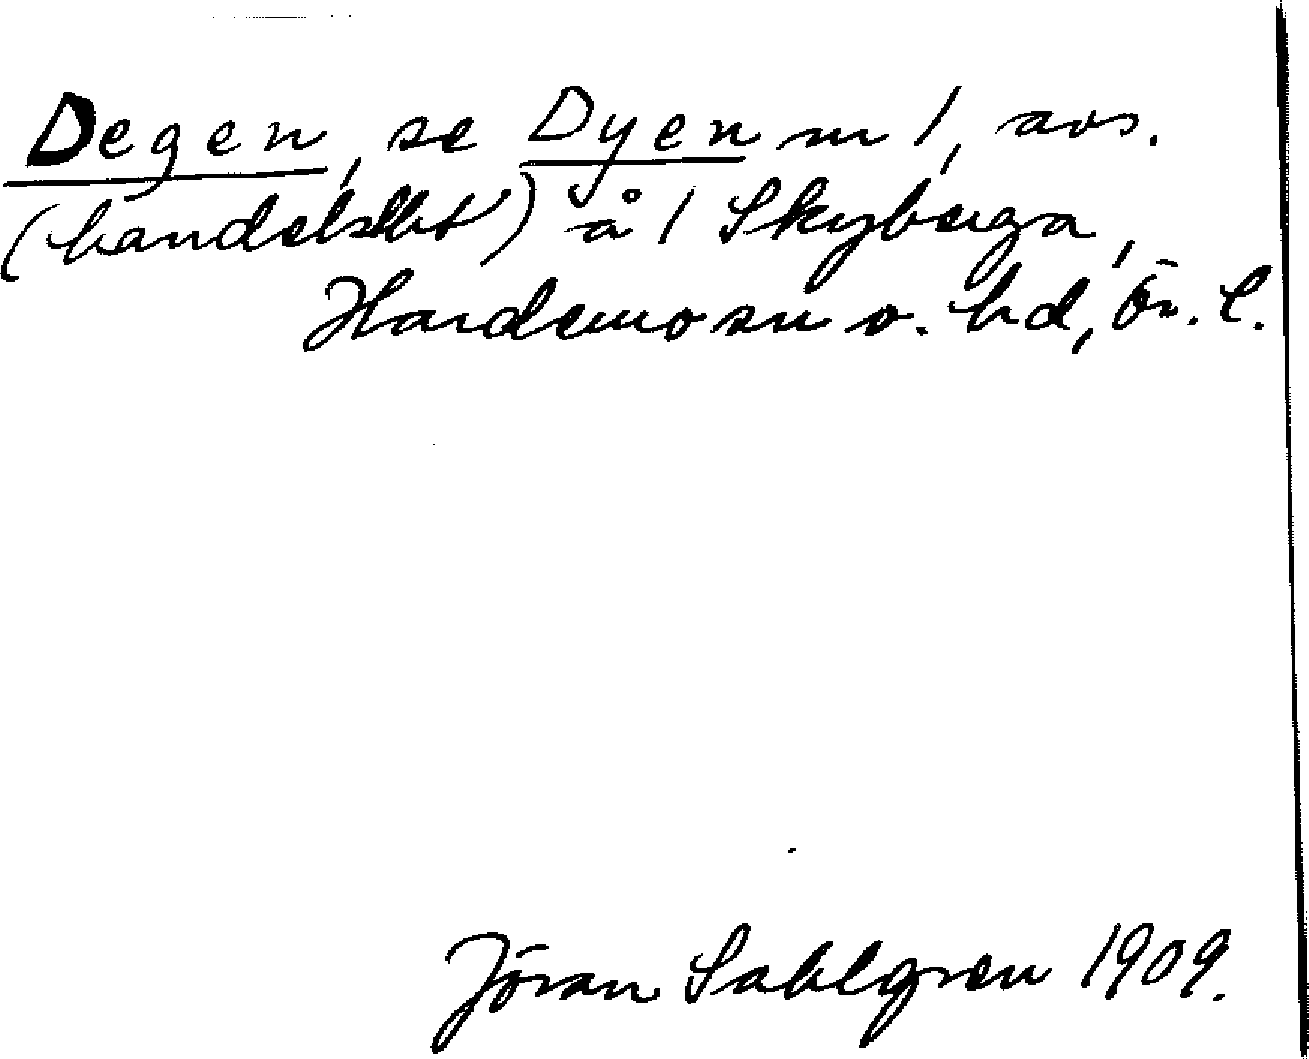 Degen, se Dyen m 1, avs.
(handelslht) å 1 Skyberga,
Hardemo sn o. hd, Ör. l.
Jöran Sahlgren 1909.